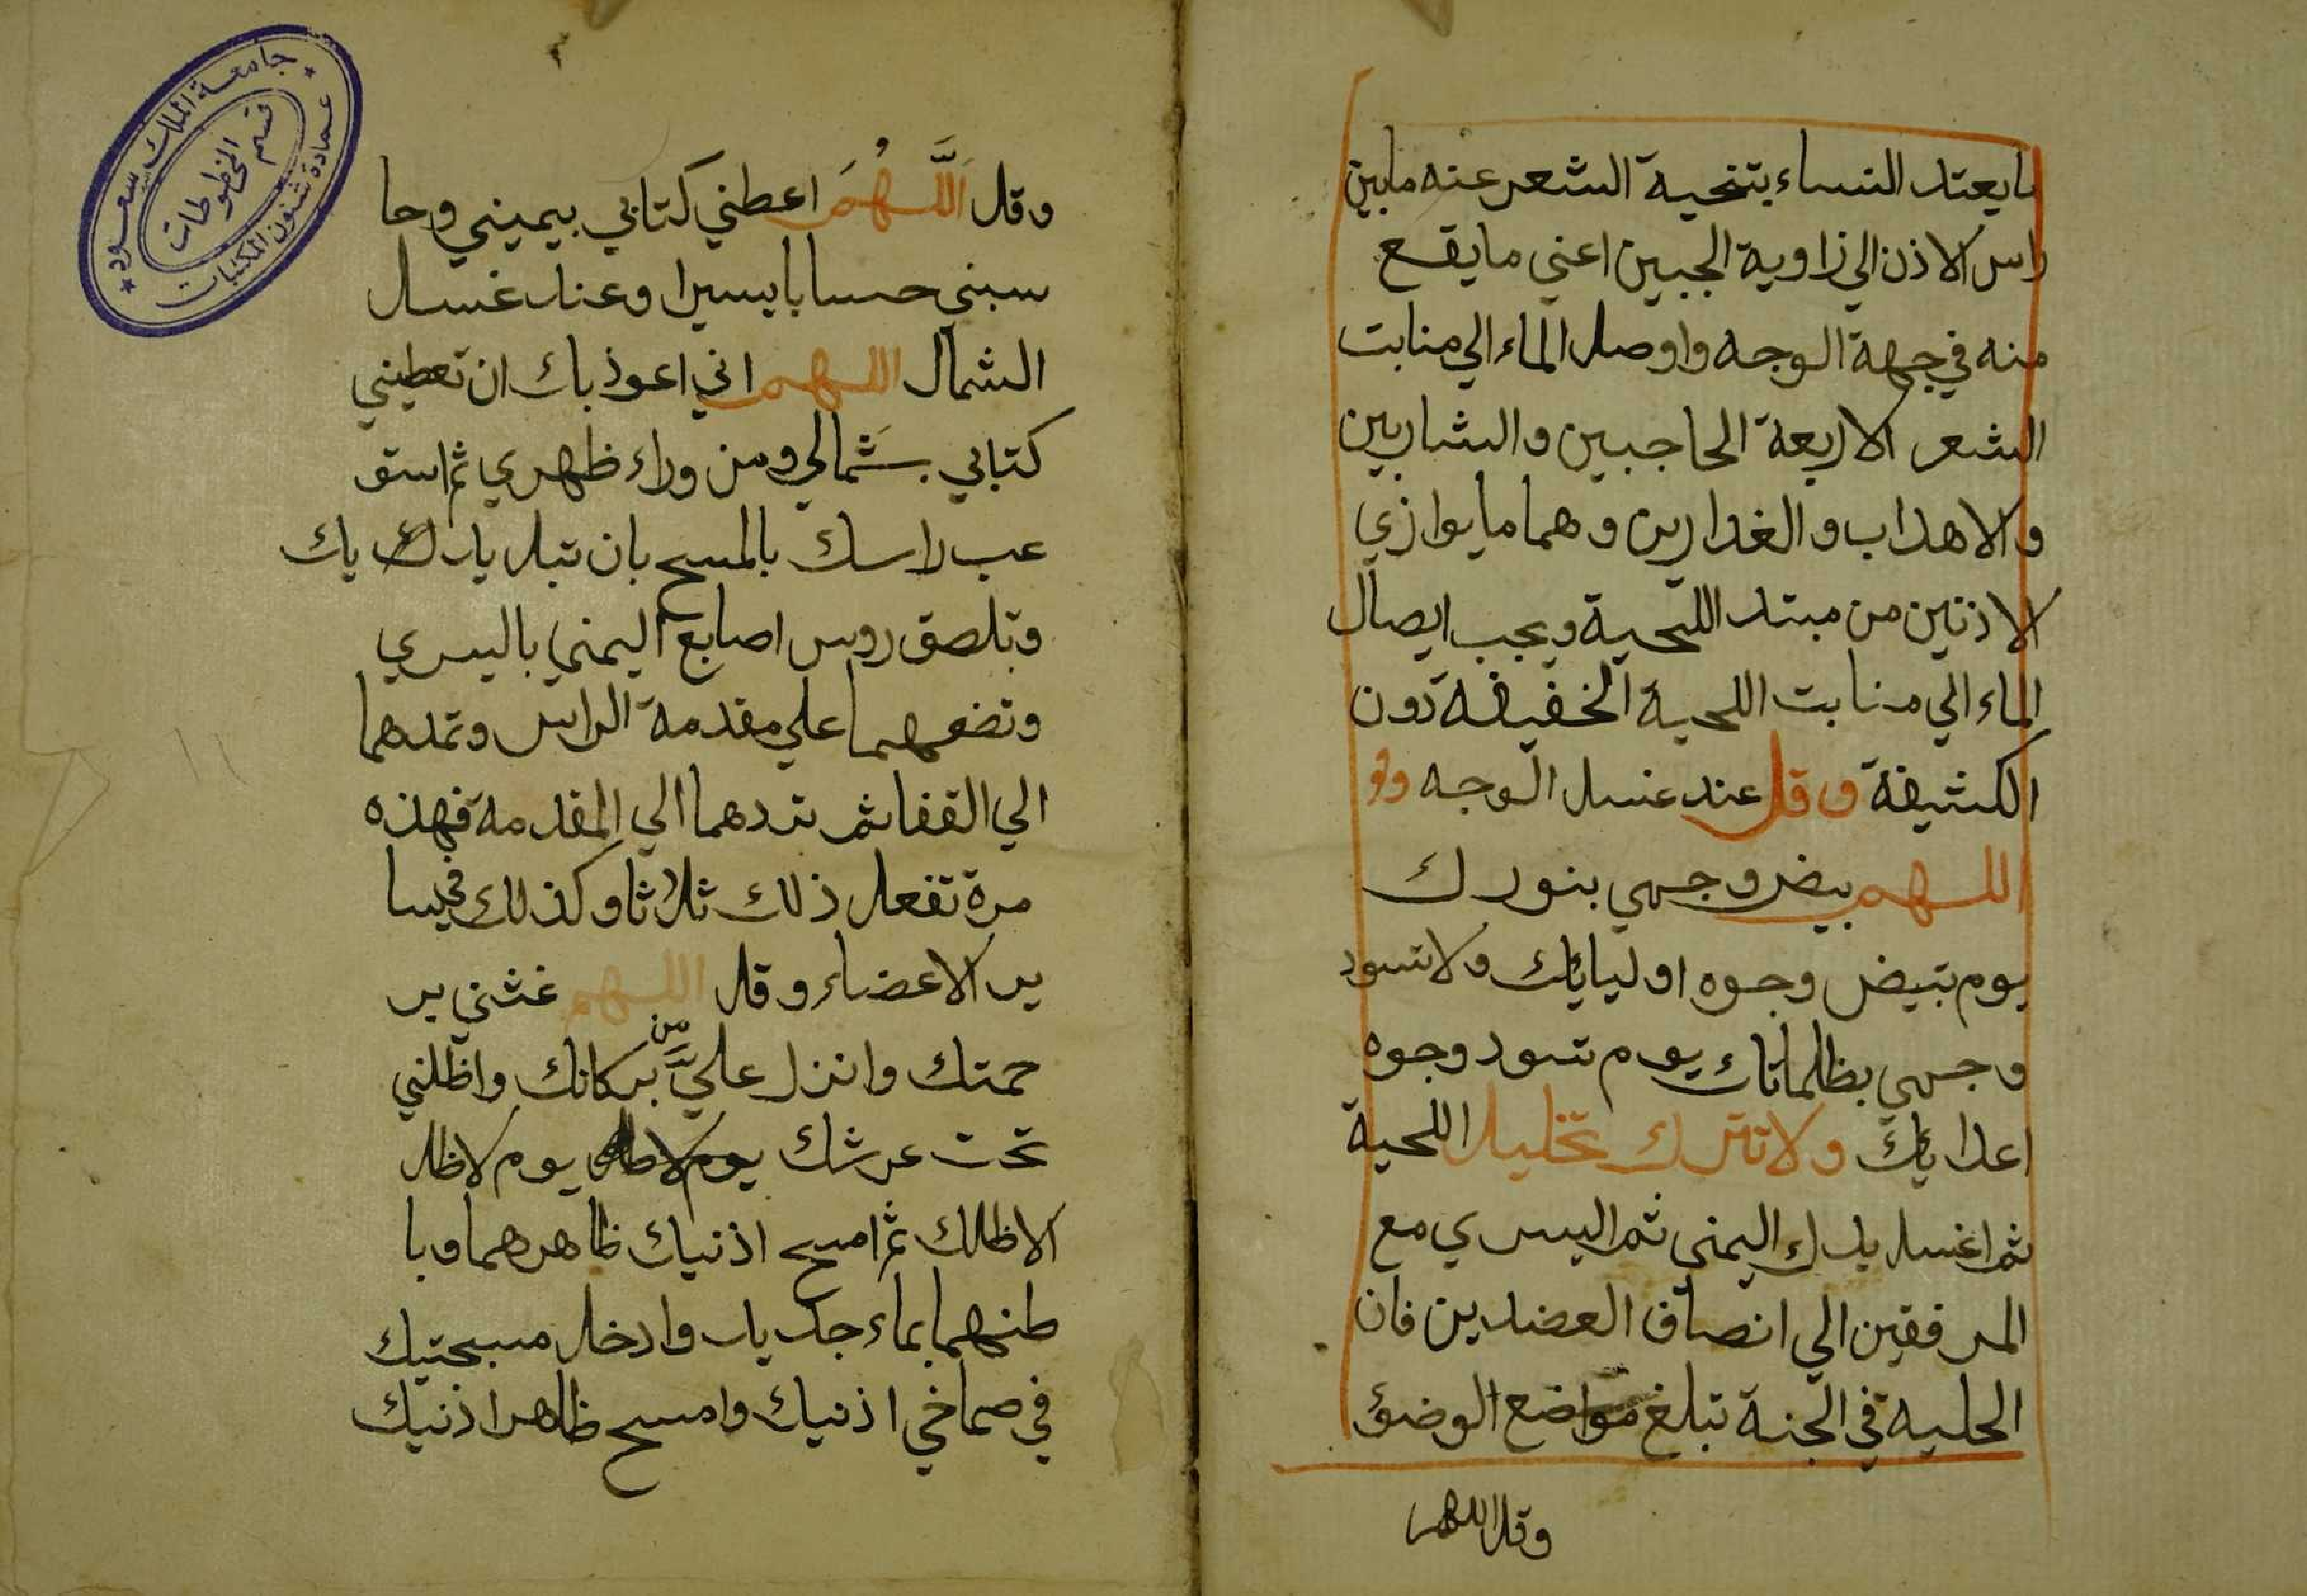 ما يعتد النساء بتنحية الشعر عنه ما بين
راس الاذن الي زاوية الجبين اعني ما يقع
منه في جهة الوجه واوصل الماء الي منابت
الشعر الاربعة الحاجبين والشاربين
والاهداب والغدارين وهما ما يوازي
الاذنين من مبتد اللحية ويجب ايصال
الماء الي منابت اللحية الخفيفة دون
الكثيفة وقل عند غسل الوجه
اللهم بيض وجهي بنورك
يوم تبيض وجوه اوليايك ولا تسود
وجهي بظلماتك يوم تسود وجوه
اعدايك ولا تترك تخليل اللحية
ثم اغسل يدك اليمني ثم اليسري مع
المرفقين الي انصاف العضدين فان
الحلية في الجنة تبلغ مواضع الوضوء
وقل اللهم
وقل اللَّهُمَ اعطني كتابي بيميني وحا
سبني حسابا يسيرا وعند غسل
الشمال اللهم اني اعوذ بك ان تعطيني
كتابي بشمالي ومن وراء ظهري ثم استو
عب راسك بالمسح بان تبل يديك
وتلصق روس اصابع اليمني باليسري
وتضعهما علي مقدمة الراس وتمدهما
الي القفا ثم تردهما الي المقدمة فهذه
مرة تفعل ذلك ثلاثا وكذلك في سا
ير الاعضاء وقل اللهم غثني بر
حمتك وانزل عليَّ من بركاتك واظلني
تحت عرشك يوم لا ظل يوم لا ظل
الا ظلك ثم امسح اذنيك ظاهرهما وبا
طنهما بماء جديد وادخل مسبحتيك
في صماخي اذنيك وامسح ظاهر اذنيك
جامعة الملك سعود
قسم المخطوطات
عمادة شئون المكتبات